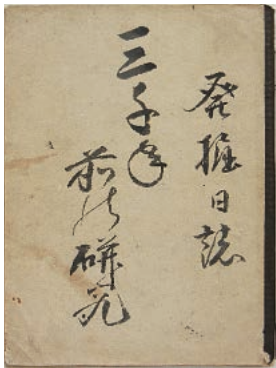 発掘日誌
三千年
前 研究